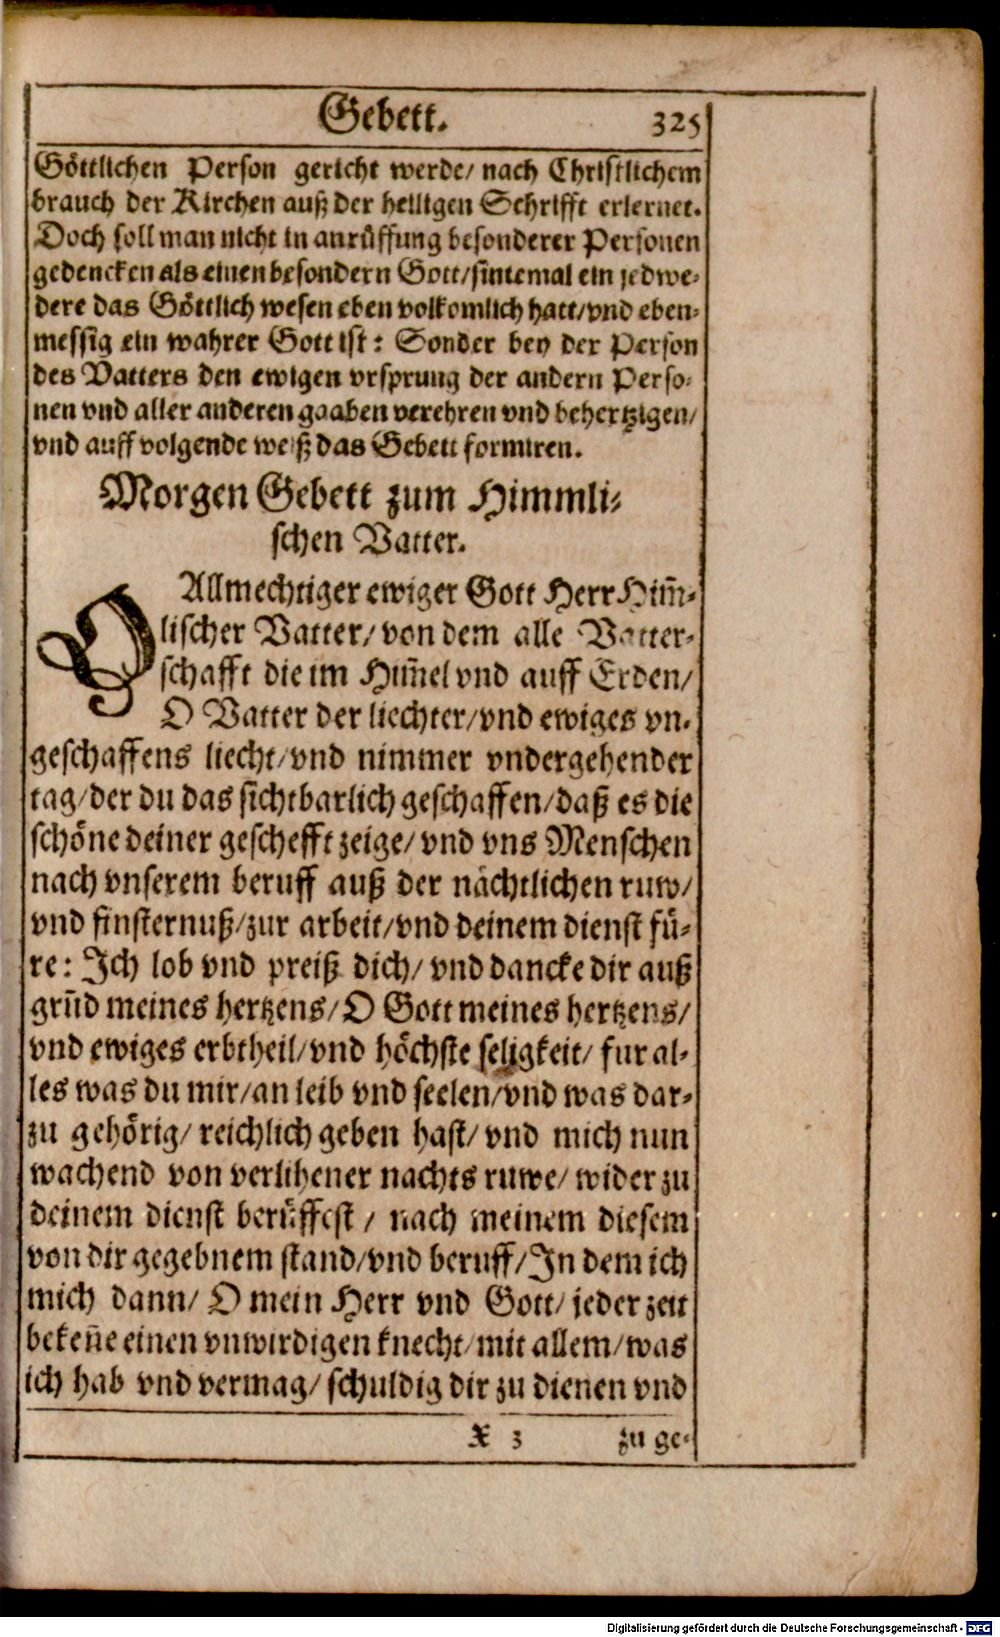 Gebett. 325
Göttlichen Person gericht werde/ nach Christlichem
brauch der Kirchen auß der heiligen Schrifft erlernet.
Doch soll man nicht in anrüffung besonderer Personen
gedencken als einen besondern Gott/ sintemal ein jedwe-
dere das Göttlich wesen eben volkomlich hatt/ vnd eben-
messig ein wahrer Gott ist: Sonder bey der Person
des Vatters den ewigen vrsprung der andern Perso-
nen vnd aller anderen gaaben verehren vnd behertzigen/
vnd auff volgende weiß das Gebett formiren.
Morgen Gebett zum Himmli-
schen Vatter.
O Allmechtiger ewiger Gott Herr Him̃-
lischer Vatter/ von dem alle Vatter-
schafft die im Him̃el vnd auff Erden/
O Vatter der liechter/ vnd ewiges vn-
geschaffens liecht/ vnd nimmer vndergehender
tag/ der du das sichtbarlich geschaffen/ daß es die
schöne deiner geschefft zeige/ vnd vns Menschen
nach vnserem beruff auß der nächtlichen ruw/
vnd finsternuß/ zur arbeit/ vnd deinem dienst fü-
re: Ich lob vnd preiß dich/ vnd dancke dir auß
grũd meines hertzens/ O Gott meines hertzens/
vnd ewiges erbtheil/ vnd höchste seligkeit/ fur al-
les was du mir/ an leib vnd seelen/ vnd was dar-
zu gehörig/ reichlich geben hast/ vnd mich nun
wachend von verlihener nachts ruwe/ wider zu
deinem dienst berüffest/ nach meinem diesem
von dir gegebnem stand/ vnd beruff/ In dem ich
mich dann/ O mein Herr vnd Gott/ jeder zeit
bekeñe einen vnwirdigen knecht/ mit allem/ was
ich hab vnd vermag/ schuldig dir zu dienen vnd
X 3 zu ge-
Digitalisierung gefördert durch die Deutsche Forschungsgemeinschaft - DFG